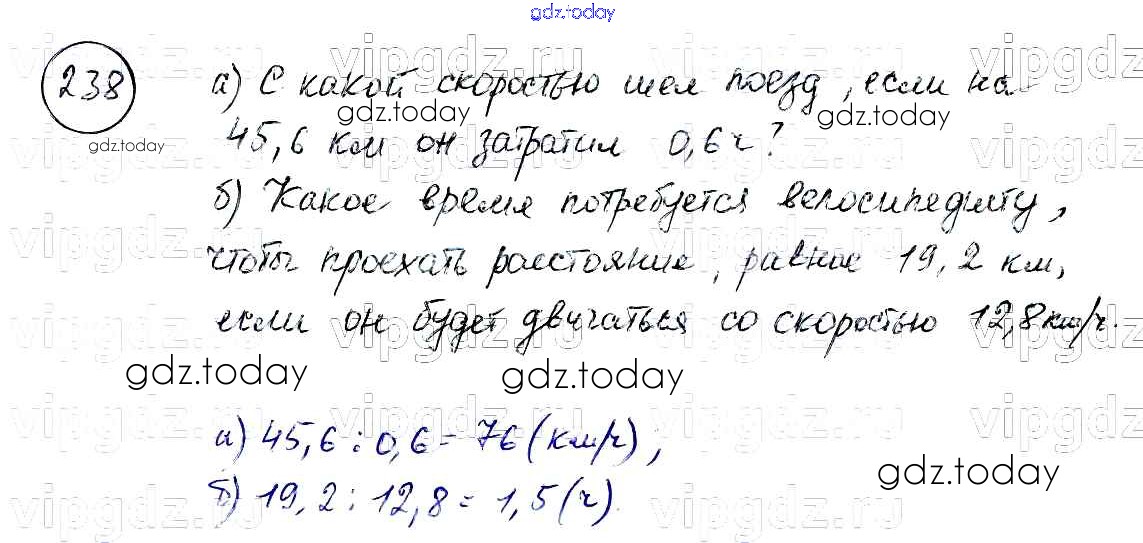 gdz.today
238
а) С какой скоростью шел поезд, если на
45,6 км он затратил 0,6 ч?
б) Какое время потребуется велосипедисту,
чтобы проехать расстояние, равное 19,2 км,
если он будет двигаться со скоростью 12,8 км/ч.
а) 45,6 : 0,6 = 76 (км/ч);
б) 19,2 : 12,8 = 1,5 (ч).
gdz.today
gdz.today
gdz.today
gdz.today
gdz.today
gdz.today
vipgdz.ru